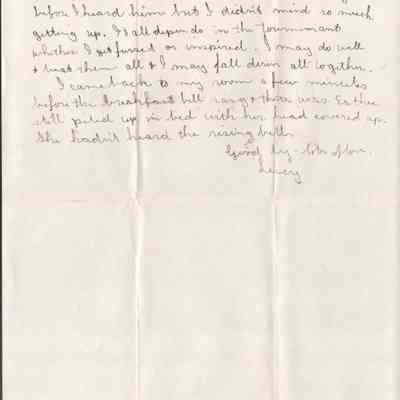 before I heard him but I didn't mind so much
getting up. It all depends in the Tournamant
whether I get fussed or inspired. I may do well
& beat them all & I may fall down all together.
I came back to my room a few minutes
before the breakfast bell rang & there was Esther
still piled up in bed with her head covered up.
She hadn't heard the rising bell.
Good by -